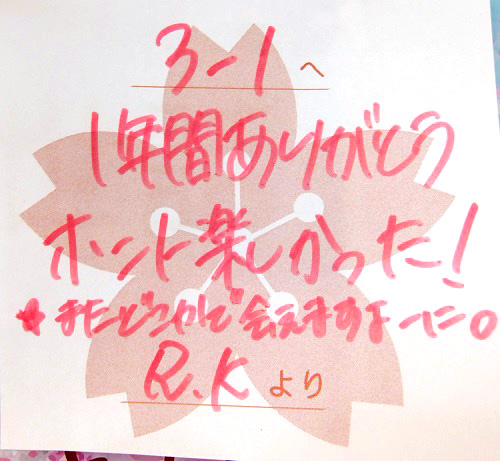 3-1 へ
1年間ありがとう
ホント楽しかった!
★またどこかで会えますよーに。
R.K より